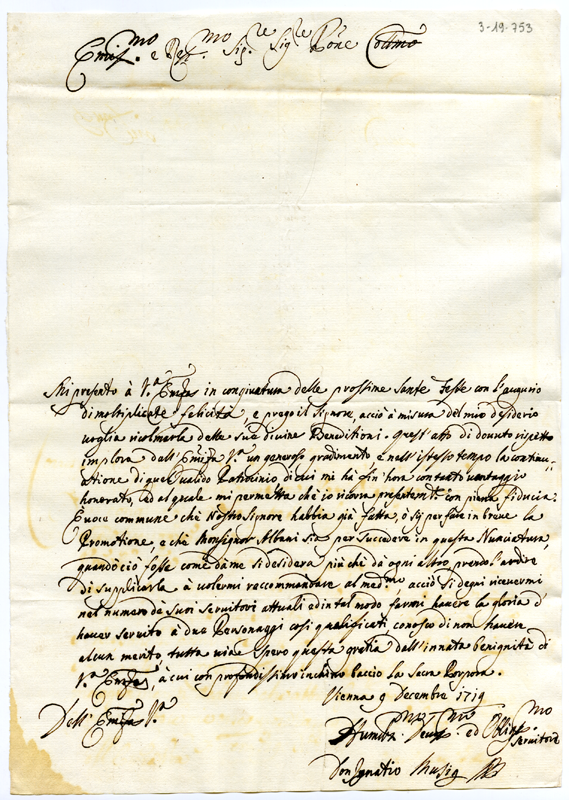 3-19-753
Emin.mo e Rev.mo Sig.re Sig.re P̃rone Col̃mo
Mi presento à V.ra Emza in congiuntura delle prossime Sante Feste con l'augurio
di moltiplicate felicità, e prego il Signore, acciò à misura del mio desiderio
voglia ricolmarla delle sue divine Beneditioni. Quest'atto di dovuto rispetto
implora dall'Emza V.ra un generoso gradimento e nell'istesso tempo la continu-
atione di quel valido Patrocinio di cui mi hà fin hora con tanto vantaggio
honorato, ed al quale mi permetta che io ricorra presentem.te con piena fiducia.
E voce commune che Nostro Signore habbia già fatta, ò sij per fare in breve la
Promotione, e che Monsignor Albani sia per succedere in questa Nunciatura,
quando ciò fosse come da me si desidera più che dà ogni altro, prendo l'ardire
di supplicarla à volermi raccommandare al med.mo, acciò si degni ricevermi
nel numero de suoi servitori attuali ed in tal modo farmi havere la gloria d'
haver servito à due Personaggi cosi qualificati conosco di non havere
alcun merito, tutta via spero questa gratia dall'innata benignità di
V.ra Emza, à cui con profondissimo inchino baccio la Sacra Porpora.
Vienna 9 Decembre 1719
Dell'Emza V.ra
Humilis.mo Devot.mo ed Oblig.mo
Servitore
Don Ignatio Musig